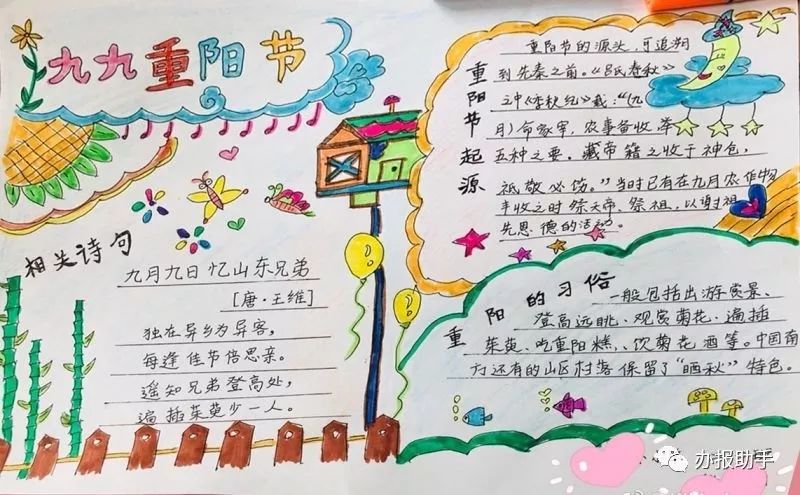 九九重阳节
相关诗句
九月九日忆山东兄弟
[唐·王维]
独在异乡为异客，
每逢佳节倍思亲。
遥知兄弟登高处，
遍插茱萸少一人。
重阳节起源
重阳节的源头，可追溯
到先秦之前。《吕氏春秋》
之中《季秋纪》载：“(九
月)命冢宰，农事备收，举
五种之要。藏帝籍之收于神仓，
祇敬必饬。”当时已有在九月农作物
丰收之时祭天帝、祭祖，以谢祖
先恩德的活动。
重阳的习俗
一般包括出游赏景、
登高远眺、观赏菊花、遍插
茱萸、吃重阳糕、饮菊花酒等。中国南
方还有的山区村落保留了“晒秋”特色。
办报助手